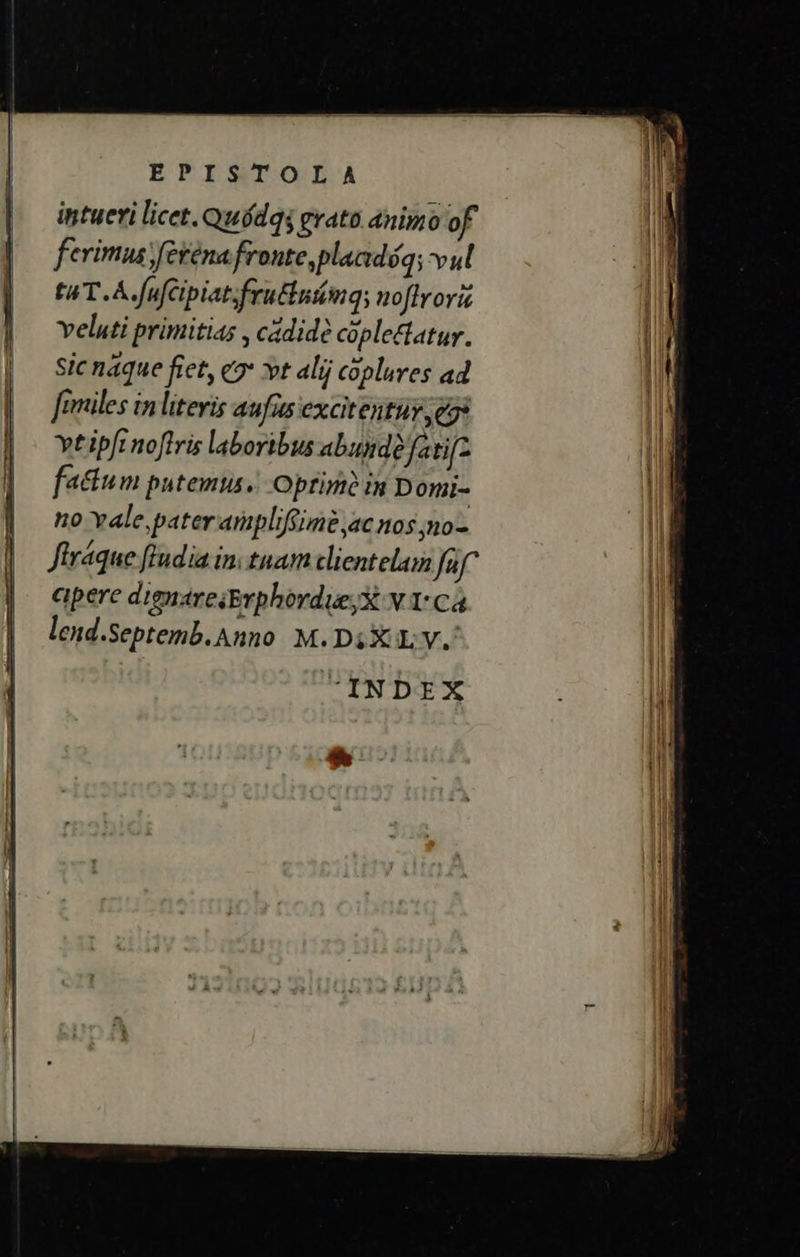 EPISTOLA
intueri licet. Quódq; grato animo of
ferimus, ſeréna fronte, placidóq; vul
tu T. A. ſuſcipiat, fructuúmq; noſtrorũ
veluti primitias, cãdidè cõplectatur.
Sic nãque fiet, & vt alij cõplures ad
ſimiles in literis auſus excitentur, &
vt ipſi noſtris laboribus abundè ſatiſ-
factum putemus. Optimè in Domi-
no vale, pater ampliſsimè, ac nos, no-
ſtráque ſtudia in tuam clientelam ſuſ
cipere dignare. Erphordiæ, XVI Ca
lend. Septemb. Anno M. D. XLV.
INDEX